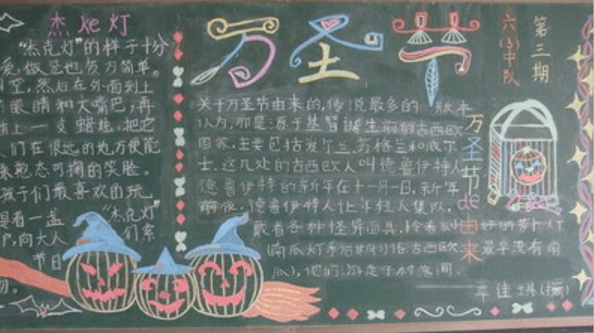 杰克灯
"杰克灯"的样子十分
爱,做法也极为简单。
空,然后在外面刻上
眼睛和大嘴巴,再
插上一支蜡烛,把它
人们在很远的地方便能
憨态可掬的笑脸。
孩子们最喜欢的玩
是着一盏"杰克灯"
向大人们索
节日
物。
万圣节
六(3)中队
第三期
关于万圣节由来的,传说最多的版本
认为,那是源于基督诞生前的古西欧
国家,主要包括爱尔兰、苏格兰和威尔
士。这几处的古西欧人叫德鲁伊特人
德鲁伊特的新年在十一月一日,新年
前夜,德鲁伊特人让年轻人集队,
戴着各种怪异面具,拎着刻好的萝卜灯
(南瓜灯系后期习俗古西欧最早没有南
瓜),他们游走于村落间。
万圣节de由来